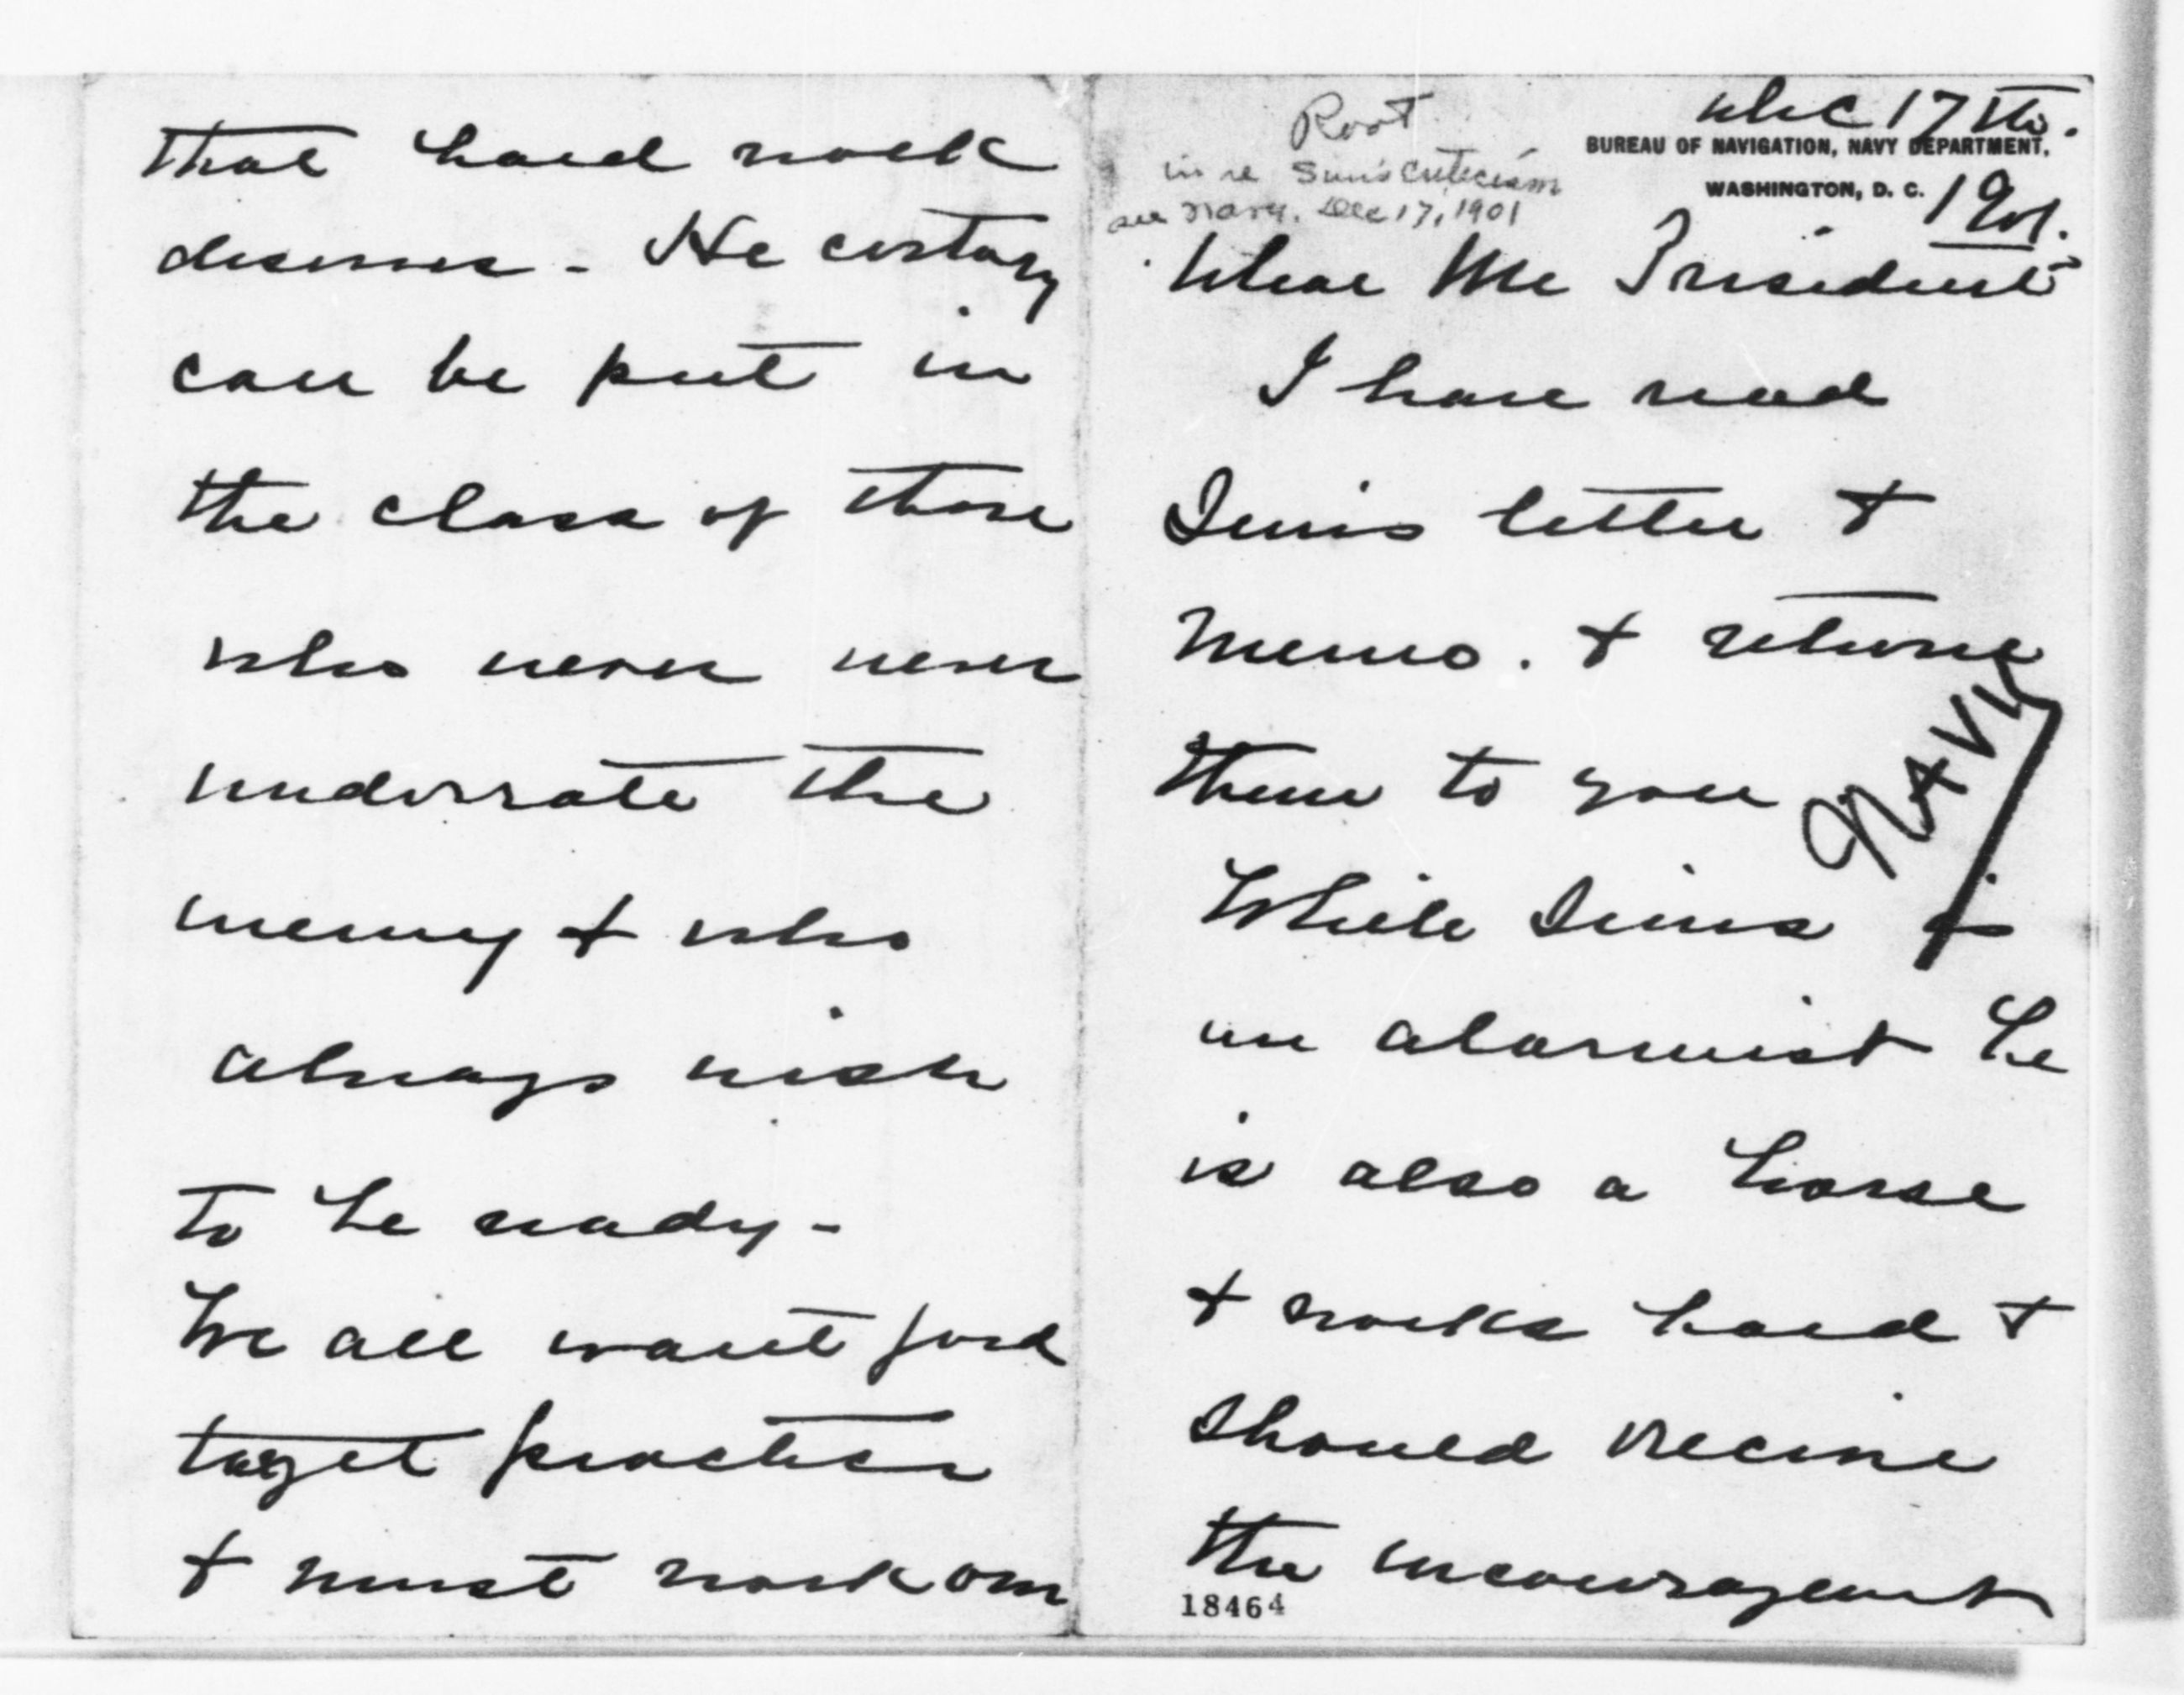 Root
in re Sims criticism
see Navy. Dec 17, 1901
Dec 17th.
BUREAU OF NAVIGATION, NAVY DEPARTMENT,
WASHINGTON, D. C.
1901.
Dear Mr President
I have read
Sims letter &
memo. & return
them to you
NAVY
While Sims is
an alarmist he
is also a horse
& works hard &
should receive
the encouragement
18464
that hard work
deserves - He certainly
can be put in
the class of those
who never never
underrate the
enemy & who
always wish
to be ready -
We all want good
target practice
& must work on